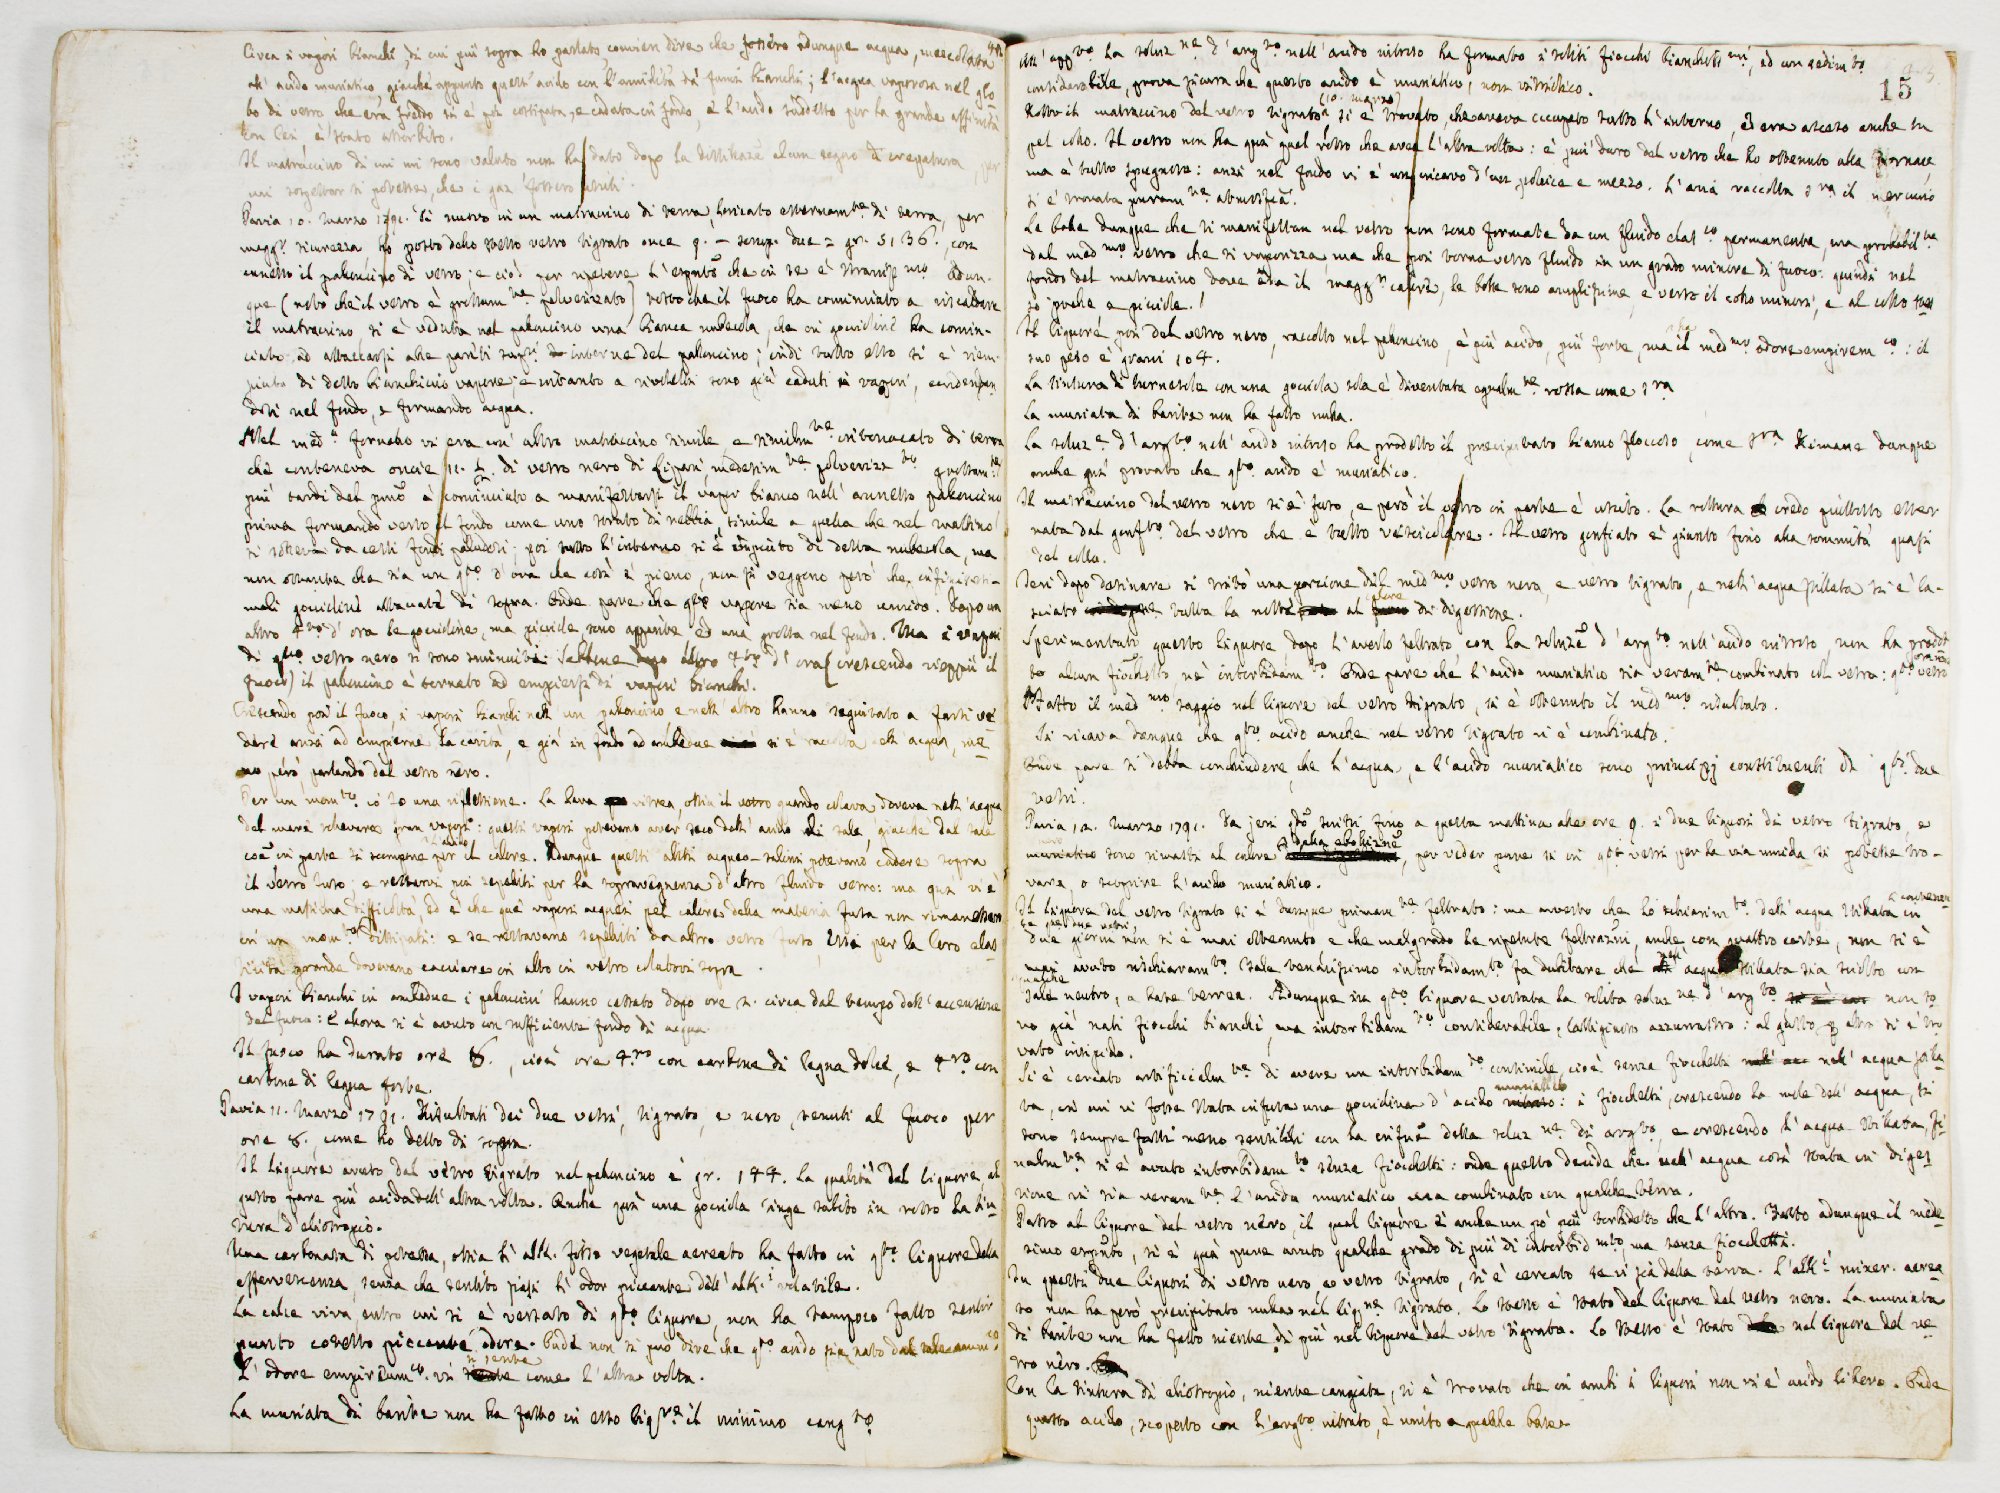 Circa i vapori bianchi, di cui più sopra ho parlato, convien dire che fossero adunque acqua, mescolata
all' acido muriatico, giacchè appunto quest' acido con l'umidità dà fumi bianchi; l'acqua vaporosa nel glo-
bo di vetro che era freddo si è poi costipata, e cadata in fondo, e l'acido suddetto per la grande affinità
con lei è stato assorbito.
Il matraccino di cui mi sono valuto non ha dato dopo la alcun segno di crepatura, per
cui sospettar si potesse, che i gaz fossero usciti.
Pavia 10. Marzo 1791. Di nuovo in un matraccino di terra, loricato esternam.te di terra, per
magg.r sicurezza ho posto dello stesso vetro tigrato once 9. due = gr. 5136., con
annesso il paloncino di vetro; e ciò per ripetere l' che in se è Adun-
que (noto che il vetro è grossam.te polverizzato) tosto che il fuoco ha cominciato a riscaldare
il matraccino si è veduta nel paloncino una bianca nubecola, che in goccioline ha comin-
ciato ad attaccarsi alle pareti interne del paloncino; indi tutto esso si è riem-
piuto di detto bianchiccio vapore; e intanto a rivoletti sono giù caduti i vapori, condensan-
dosi nel fondo, e formando acqua.
Nel med.o fornello vi era un' altro matraccino simile e similm.te intonacato di terra
che conteneva oncie 11. ½. di vetro nero di Lipari, medesim.te polverizz.to grossam.te
più tardi del primo è cominciato a manifestarsi il vapor bianco nell' annesso paloncino
prima formando verso il fondo come uno strato di nebbia, simile a quella che nel mattino
si solleva da certi fondi paludosi; poi tutto l'interno si è empiuto di detta nubecola, ma
non ostante che sia un q.to d'ora che così è pieno, non si veggono però che infinitesi-
mali goccioline attaccate di sopra. Onde pare che q.to vapore sia meno umido. Dopo un
altro 4.to d'ora le goccioline, ma picciole, sono apparite ed una grossa nel fondo. Ma i vapori
di q.to vetro nero si sono sminuiti. Sebbene altro 4.to d'ora (crescendo vieppiù il
fuoco) il paloncino è tornato ad empiersi di vapori bianchi.
Crescendo poi il fuoco, i vapori bianchi nell' un paloncino, e nell' altro hanno seguitato a farsi ve-
dere anzi ad empierne la cavità, e giù in fondo ad ambedue si è raccolta dell' acqua, me-
no però, parlando del vetro nero.
Per un mom.to io fo una riflessione. La lava vitrea, ossia il vetro quando colava doveva nell' acqua
del mare sollevare gran vapori: questi vapori potevano aver seco dell' acido di sale, giacchè dal sale
così in parte si scompone per il calore. Adunque questi aliti acqueo-salini potevano cadere sopra
il vetro fuso, e restarvi poi sepolti per la sopravvegnenza d'altro fluido vetro: ma qui vi è
una massima difficoltà, ed è che que' vapori acquei pel calore della materia fusa non rimanessero
in un mom.to dissipati: e se restavano sepolti da altro vetro fuso, essi per la loro elas-
ticità grande dovevano cacciare in alto il vetro colatovi sopra.
I vapori bianchi in ambedue i paloncini hanno cessato dopo ore 2. circa dal tempo dell' accensione
del fuoco: e allora si è avuto un sufficiente fondo di acqua.
Il fuoco ha durato ore 8., cioè ore 4.ro con carbone di legna dolce, e 4.ro con
carbone di legna forte.
Pavia 11. Marzo 1791. Risultati dei due vetri, tigrato, e nero, tenuti al fuoco per
ore 8. come ho detto di sopra.
Il liquore avuto dal vetro tigrato nel paloncino è gr. 144. La qualità del liquore, al
gusto pare più acida dell' altra volta. Anche qui una gocciola tinge subito in rosso la tin-
tura d'eliotropio.
Una carbonata di potassa, ossia l'alk. fisso vegetale aereato ha fatto in q.to liquore della
effervescenza, senza che sentito siasi l'odor piccante dell' alk.i volatile.
La calce viva, entro cui si è versato di q.to liquore, non ha tampoco fatto sentir
punto cotesto piccante odore. Onde non si può dire che q.to acido sia nato dal sale ammon.co
L' odore empireum.co vi si sente come l'altra volta.
La muriata di barite non ha fatto in esso liq.re il minimo cang.to
All' opp.to la soluz.ne d'arg.to nell' acido nitroso ha formato i soliti fiocchi bianchissimi, ed un sedim.to
considerabile, prova sicura che questo acido è muriatico, non vitriolico.
15
Rotto il matraccino del vetro tigrato (10. marzo) si è trovato, che aveva occupato tutto l'interno, ed era asceso anche su
pel collo. Il vetro non ha quì quel rosso che avea l'altra volta: è più duro del vetro che ho ottenuto alla fornace,
ma è tutto spugnoso: anzi nel fondo vi è un incavo d'un pollice e mezzo. L'aria raccolta s.ra il mercurio
si è trovata puram.te atmosfer.a
Le bolle dunque che si manifestan nel vetro non sono formate da un fluido elast.co permanente, ma probabil.te
dal med.mo vetro che si vaporizza, ma che poi torna vetro fluido in un grado minore di fuoco: quindi nel
fondo del matraccino dove era il magg.r calore, le bolle sono amplissime, e verso il collo minori, e al collo stes-
so poche e picciole.
Il liquore poi del vetro nero, raccolto nel paloncino, è più acido, più forte, ma ha il med.mo odore empirem.co: il
suo peso è grani 104.
La tintura di turnesole con una gocciola sola è diventata egualm.te rossa come s.ra
La muriata di barite non ha fatto nulla.
La soluz.e d'arg.to nell' acido nitroso ha prodotto il precipitato bianco fioccoso, come s.ra Rimane dunque
anche quì provato che q.to acido è muriatico.
Il matraccino del vetro nero si è fuso, e però il vetro in parte è uscito. La rottura credo piuttosto esser
nata dal gonf.to del vetro che è tutto vescicolare. Il vetro gonfiato è giunto fino alla sommità quasi
del collo.
Jeri dopo desinare si tritò una porzione del med.mo vetro nero, e vetro tigrato, e nell' acqua stillata si è la-
sciato tutta la notte al calore di digestione.
Sperimentato questo liquore, dopo l'averlo feltrato, con la soluz.e d'arg.to nell' acido nitroso, non ha prodot-
to alcun fiocchetto nè intorbidam.to Onde pare che l'acido muriatico sia veram.te combinato col vetro: q.to vetro
Fatto il med.mo saggio nel liquore del vetro tigrato, si è ottenuto il med.mo risultato.
Si ricava dunque che q.to acido anche nel vetro tigrato vi è combinato.
Onde pare si debba conchiudere, che l'acqua, e l'acido muriatico sono principj constituenti di q.ti due
vetri.
Pavia 12. Marzo 1791. Da jeri fino a questa mattina alle ore 9. i due liquori di vetro tigrato, e
nero sono rimasti al calore della ebolliz.e, per veder pure se in q.ti vetri per la via umida si potesse tro-
vare, o scoprire l'acido muriatico.
Il liquore del vetro tigrato si è dunque primam.te feltrato: ma avverto che lo schiarim.to dell' acqua stillata in
due giorni non si è mai ottenuto e che malgrado le ripetute feltrazioni, anche con quattro carte, non si è
mai avuto rischiaram.to Tale tenacissimo intorbidam.to fa dubitare che nell' acqua stillata sia sciolto un
sale neutro, a base terrea. Adunque in q.to liquore versata la solita soluz.ne d'arg.to non so-
no già nati fiocchi bianchi, ma intorbidam.to considerabile, caliginoso azzurrastro: al gusto si è tro-
vato insipido.
Si è cercato artificialm.te di avere un intorbidam.to consimile, cioè senza fiocchetti nell' acqua stilla-
ta, in cui vi fosse stata infusa una gocciolina d'acido muriatico: i fiocchetti, crescendo la mole dell' acqua, si
sono sempre fatti meno sensibili con la infus.e della soluz.ne di arg.to, e crescendo l'acqua stillata, fi-
nalm.te si è avuto intorbidam.to senza fiocchetti: onde questo decide che nell' acqua così stata in diges-
tione vi sia veram.te l'acido muriatico ma combinato con qualche terra.
Passo al liquore del vetro nero, il qual liquore è anche un pò più torbidetto che l'altro. Fatto adunque il mede-
simo, si è quì pure avuto qualche grado di più di intorbid.mto, ma senza fiocchetti.
In questi due liquori di vetro nero, e vetro tigrato, si è cercato se vi sia della terra. L'alk.i miner. aerea-
to non ha però precipitato nulla nel liq.re tigrato. Lo stesso è stato del liquore del vetro nero. La muriata
di barite non ha fatto niente di più nel liquore del vetro tigrato. Lo stesso è stato nel liquore del ve-
tro nero.
Con la tintura di eliotropio, niente cangiata, si è trovato che in ambi i liquori non vi è acido libero. Onde
questo acido, scoperto con l'arg.to nitrato, è unito a qualche base.